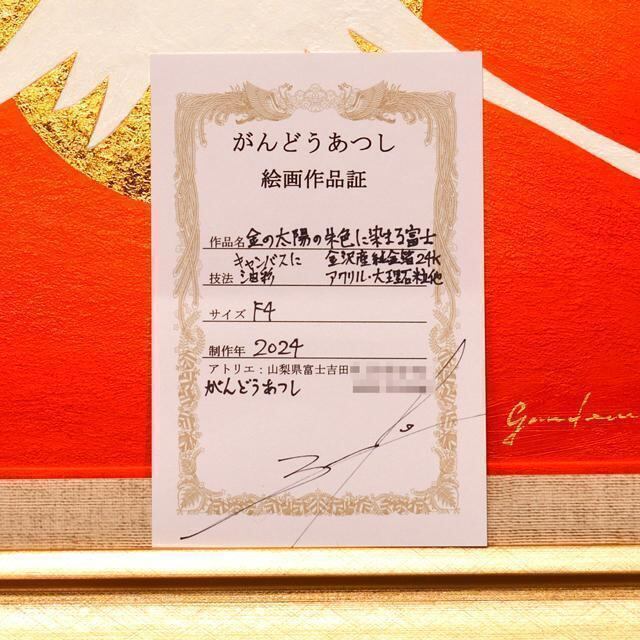 がんどうあつし
絵画作品証
作品名 金の太陽の朱色に染まる富士
キャンバスに 金沢産純金箔24K
技法 油彩 アクリル・大理石粒他
サイズ F4
制作年 2024
アトリエ：山梨県富士吉田
がんどうあつし